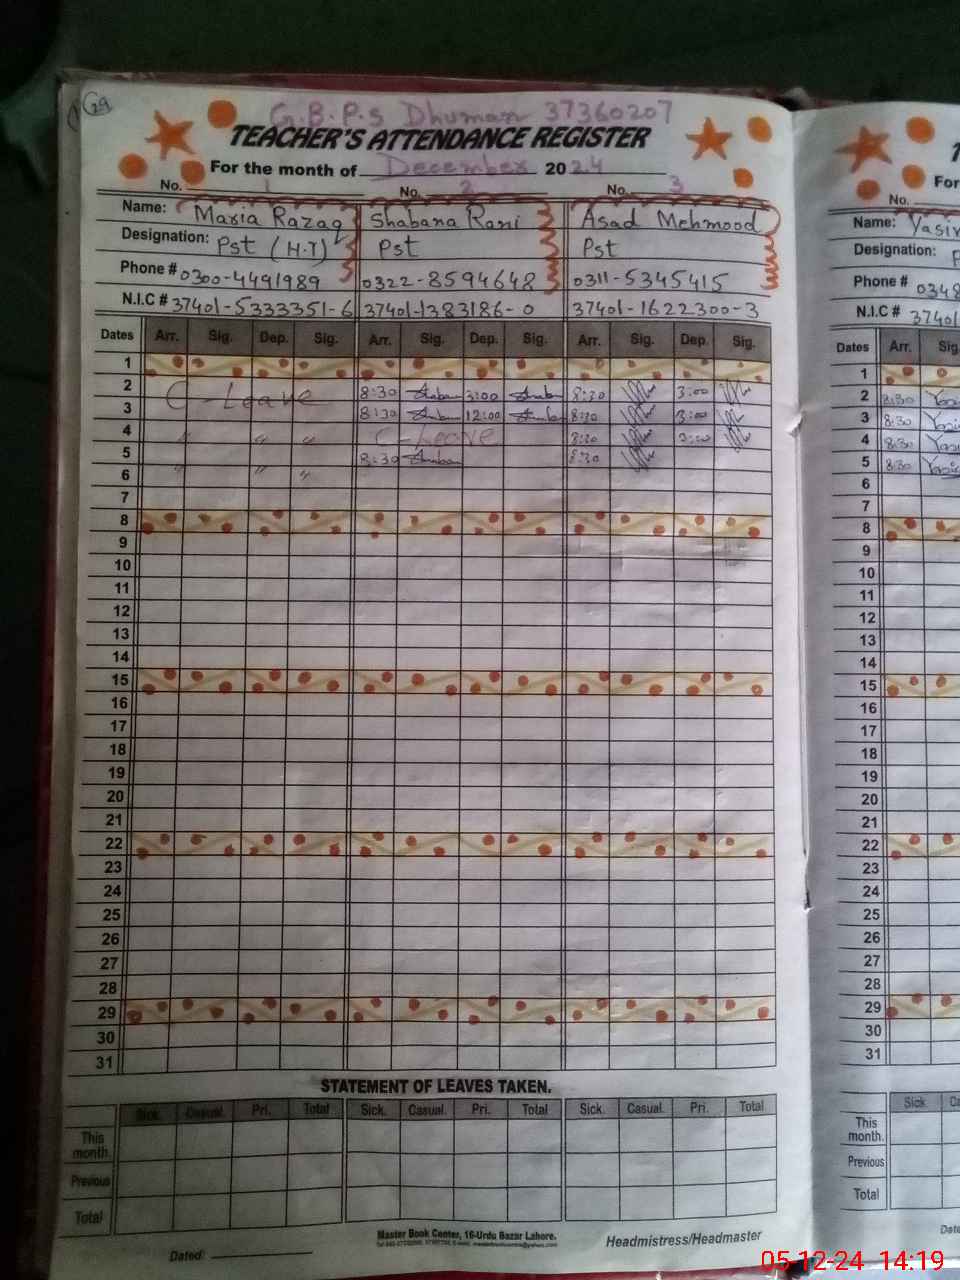 G.B.P.S Dhuman 37360207
TEACHER'S ATTENDANCE REGISTER
For the month of December 2024
No. 1 No. 2 No. 3
Name: Maria Razaq Shabana Rani Asad Mehmood
Designation: Pst (H.T) Pst Pst
Phone # 0300-4491989 0322-8594648 0311-5345415
N.I.C # 37401-5333351-6 37401-1383186-0 37401-1622300-3
Dates Arr. Sig. Dep. Sig. Arr. Sig. Dep. Sig. Arr. Sig. Dep. Sig.
1
2 C-Leave 8:30 3:00 8:30 3:00
3 8:30 12:00 8:30 3:00
4 " " " C-Leave 8:30 3:00
5 8:30 8:30
6 " " "
7
8
9
10
11
12
13
14
15
16
17
18
19
20
21
22
23
24
25
26
27
28
29
30
31
STATEMENT OF LEAVES TAKEN.
Sick. Casual. Pri. Total Sick. Casual. Pri. Total Sick. Casual. Pri. Total
This month.
Previous
Total
Master Book Center, 16-Urdu Bazar Lahore.
Dated: Headmistress/Headmaster
For
No.
Name: Yasir
Designation:
Phone # 0348
N.I.C # 37401
Dates Arr. Sig.
1
2 8:30
3 8:30
4 8:30
5 8:30
6
7
8
9
10
11
12
13
14
15
16
17
18
19
20
21
22
23
24
25
26
27
28
29
30
31
Sick.
This month.
Previous
Total
05-12-24 14:19